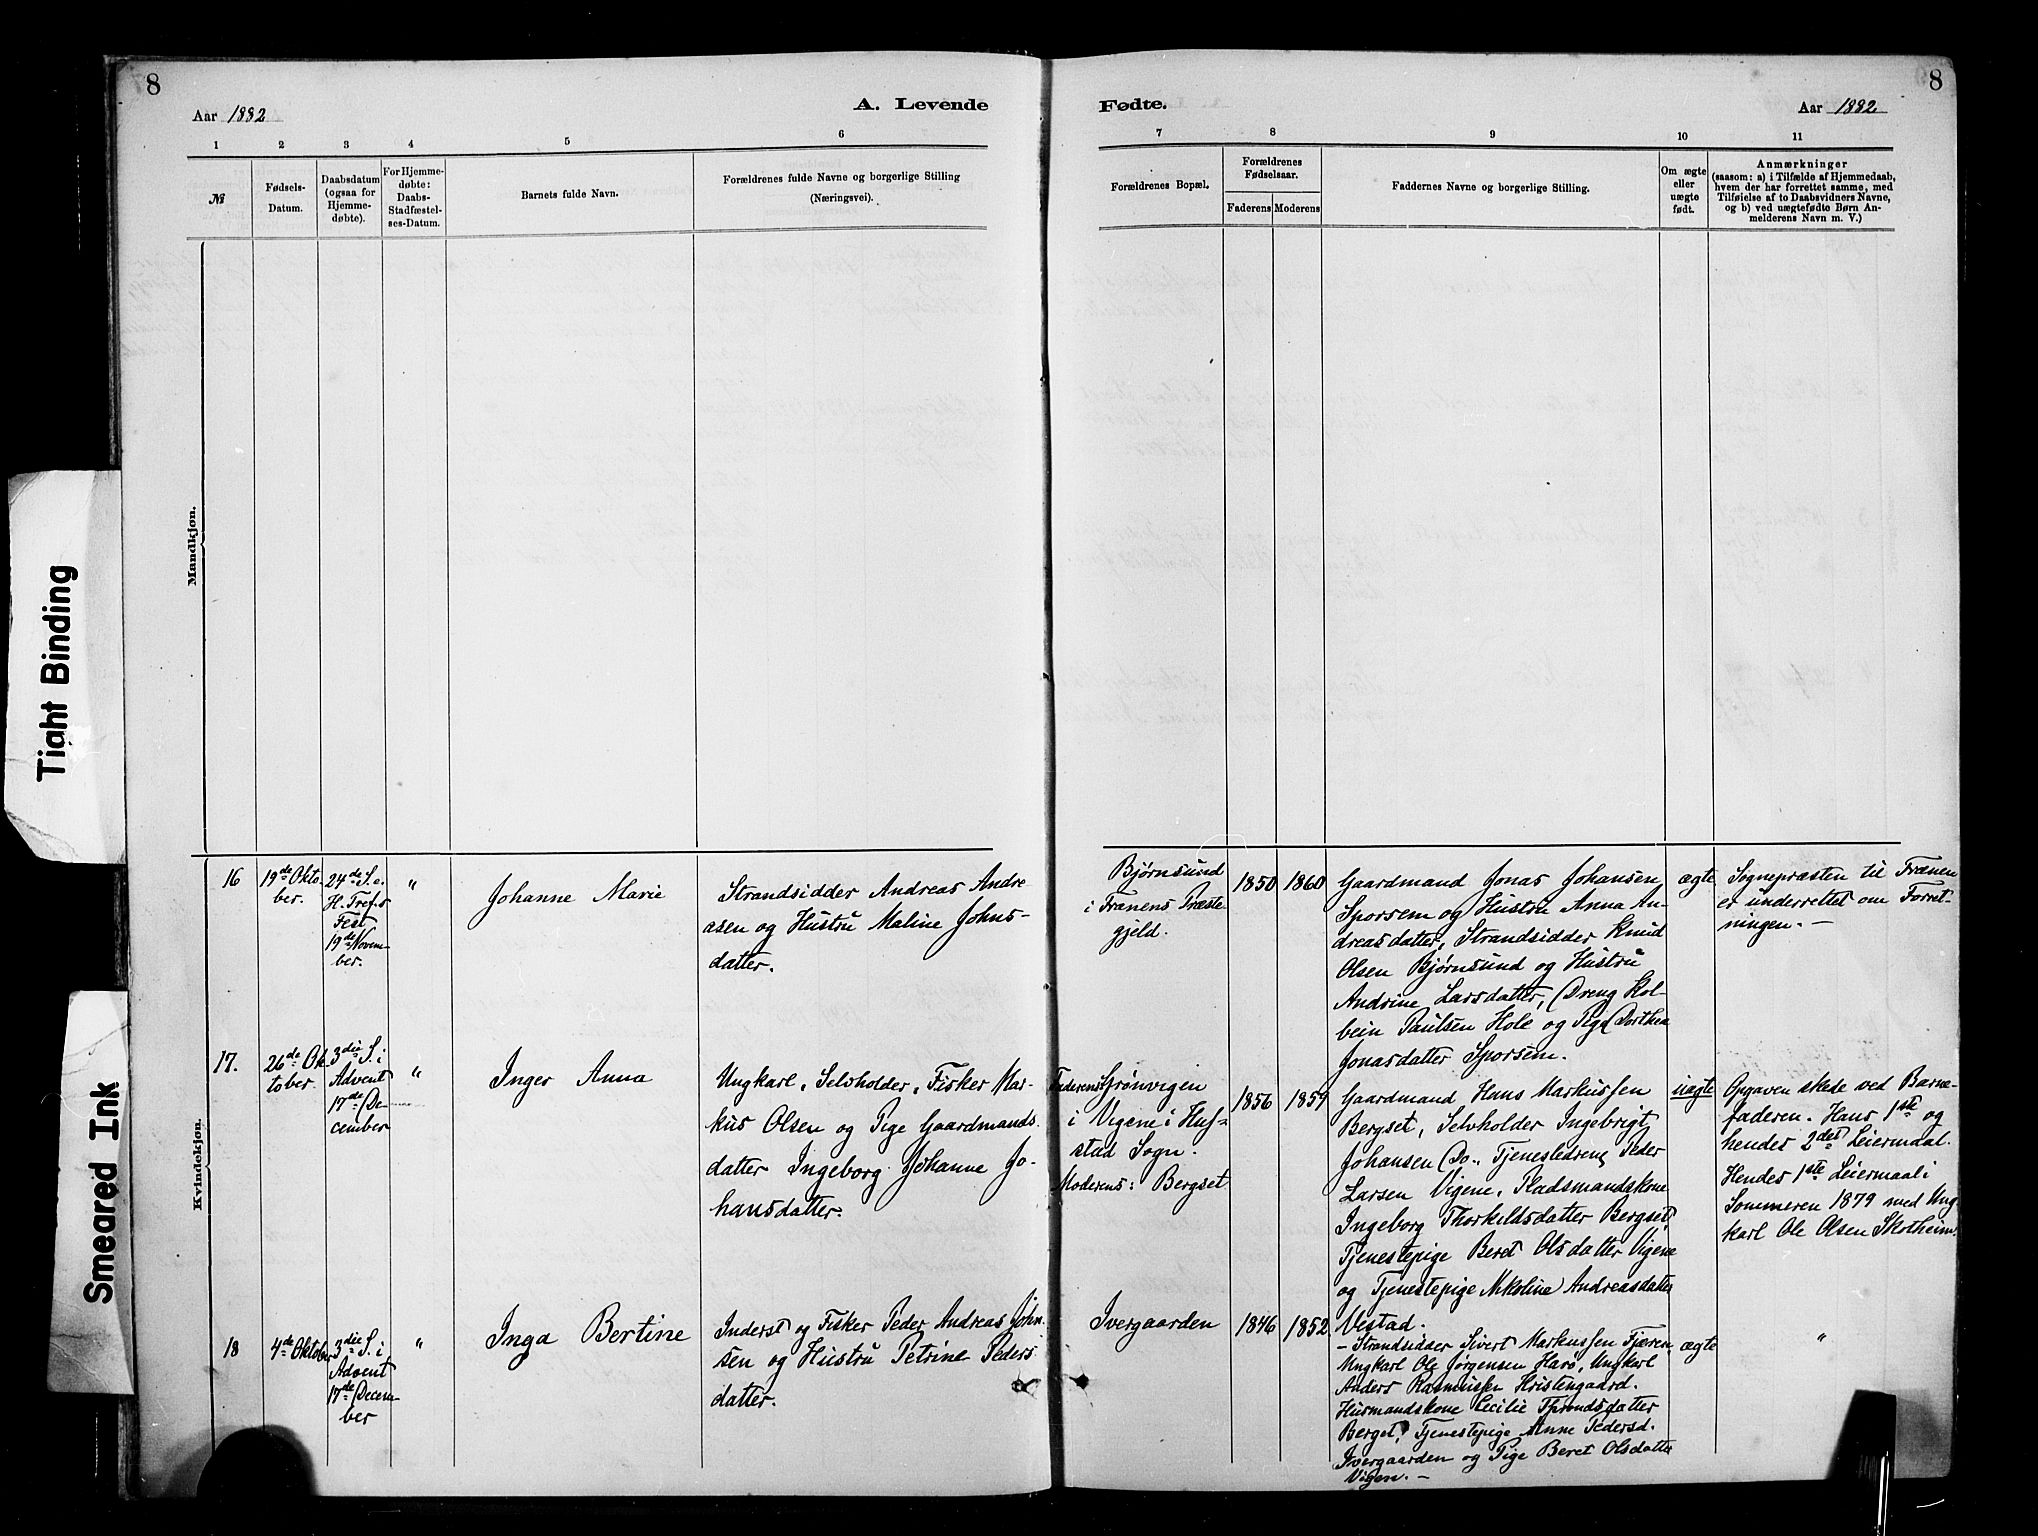 8
8
Aar 1882
A. Levende
Fødte.
Aar 1882
1 2 3 4 5 6 7 8 9 10 11
№
Fødsels-
Datum.
Daabsdatum
(ogsaa for
Hjemme-
døbte).
For Hjemme-
døbte:
Daabs-
Stadfæstel-
ses-Datum.
Barnets fulde Navn.
Forældrenes fulde Navne og borgerlige Stilling
(Næringsvei).
Forældrenes Bopæl.
Forældrenes
Fødselsaar.
Faderens
Moderens
Faddernes Navne og borgerlige Stilling.
Om ægte
eller
uægte
født.
Anmærkninger
(saasom: a) i Tilfælde af Hjemmedaab,
hvem der har forrettet samme, med
Tilføielse af to Daabsvidners Navne,
og b) ved uægtefødte Børn An-
melderens Navn m. V.)
Mandkjøn.
Kvindekjøn.
16
19de Okto-
ber.
24de S. e.
H. Tref.s
Fest
19de Novem-
ber.
"
Johanne Marie
Strandsidder Andreas Andre
asen og Hustru Maline Johns-
datter.
Bjørnsund
i Frænens Præste-
gjeld.
1850
1860
Gaardmand Jonas Johansen
Sporsem og Hustru Anna An-
dreasdatter, Strandsidder Knud
Olsen Bjørnsund og Hustru
Andrine Larsdatter, Dreng Kol-
bein Paulsen Hole og Pige Dorthea
Jonasdatter Sporsem.
ægte
Sognepræsten til Frænen
er underrettet om Forret-
ningen. -
17.
26de Ok-
tober.
3die S. i
Advent
17de De-
cember
"
Inger Anna
Ungkarl, Selvholder, Fisker Mar-
kus Olsen og Pige Gaardmands-
datter Ingeborg Johanne Jo-
hansdatter.
Faderens: Grønvigen
i Vigene i Huf-
stad Sogn.
Moderens: Bergset
1856
1859
Gaardmand Hans Markussen
Bergset, Selvholder Ingebrigt
Johansen Do., Tjenestedreng Peder
Larsen Vigene, Pladsmandskone
Ingeborg Thorkildsdatter Bergset,
Tjenestepige Beret Olsdatter Vigene
og Tjenestepige Nikoline Andreasdatter
Vestad.
uægte
Opgaven skede ved Barne-
faderen. Hans 1ste og
hendes 2det Leiermaal.
Hendes 1ste Leiermaal i
Sommeren 1879 med Ung
karl Ole Olsen Skotheim.
18
4de Oktober
3die S. i
Advent
17de Decem-
ber
"
Inga Bertine
Inderst og Fisker Peder Andreas John-
sen og Hustru Petrine Peders-
datter.
Ivergaarden
1846
1852
- Strandsidder Sivert Markussen Fjæren,
Ungkarl Ole Jørgensen Harø, Ungkarl
Anders Rasmussen Hristengaard.
Husmandskone Cecilie Throndsdatter
Berget, Tjenestepige Anne Pedersd.
Ivergaarden og Pige Beret Olsdatter
Vigen. -
ægte
"
Tight Binding
Smeared Ink